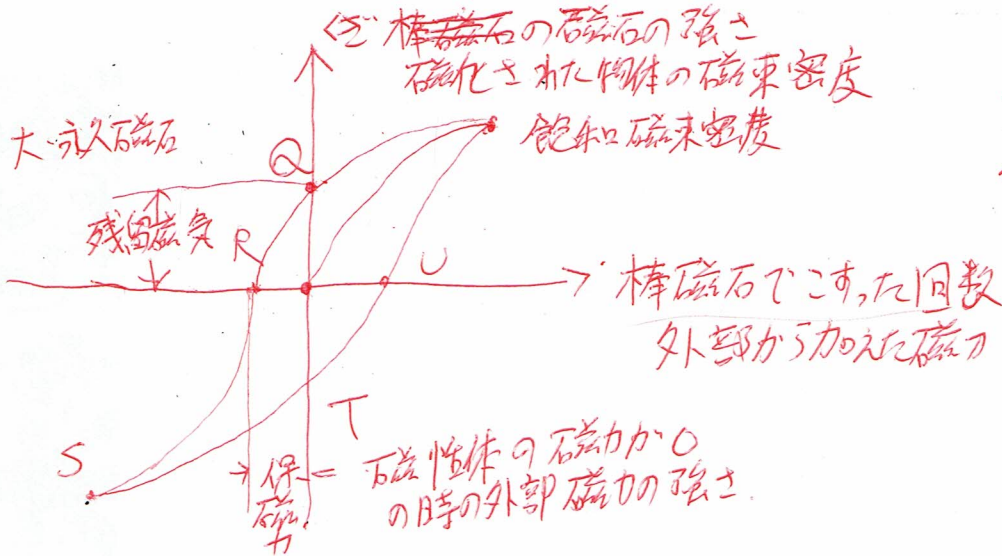 くぎ 棒磁石の磁石の強さ
磁化された物体の磁束密度
飽和磁束密度
大・永久磁石
Q
残留磁気
R
U
棒磁石でこすった回数
外部から加えた磁力
T
S
保磁力
= 磁性体の磁力が0
の時の外部磁力の強さ